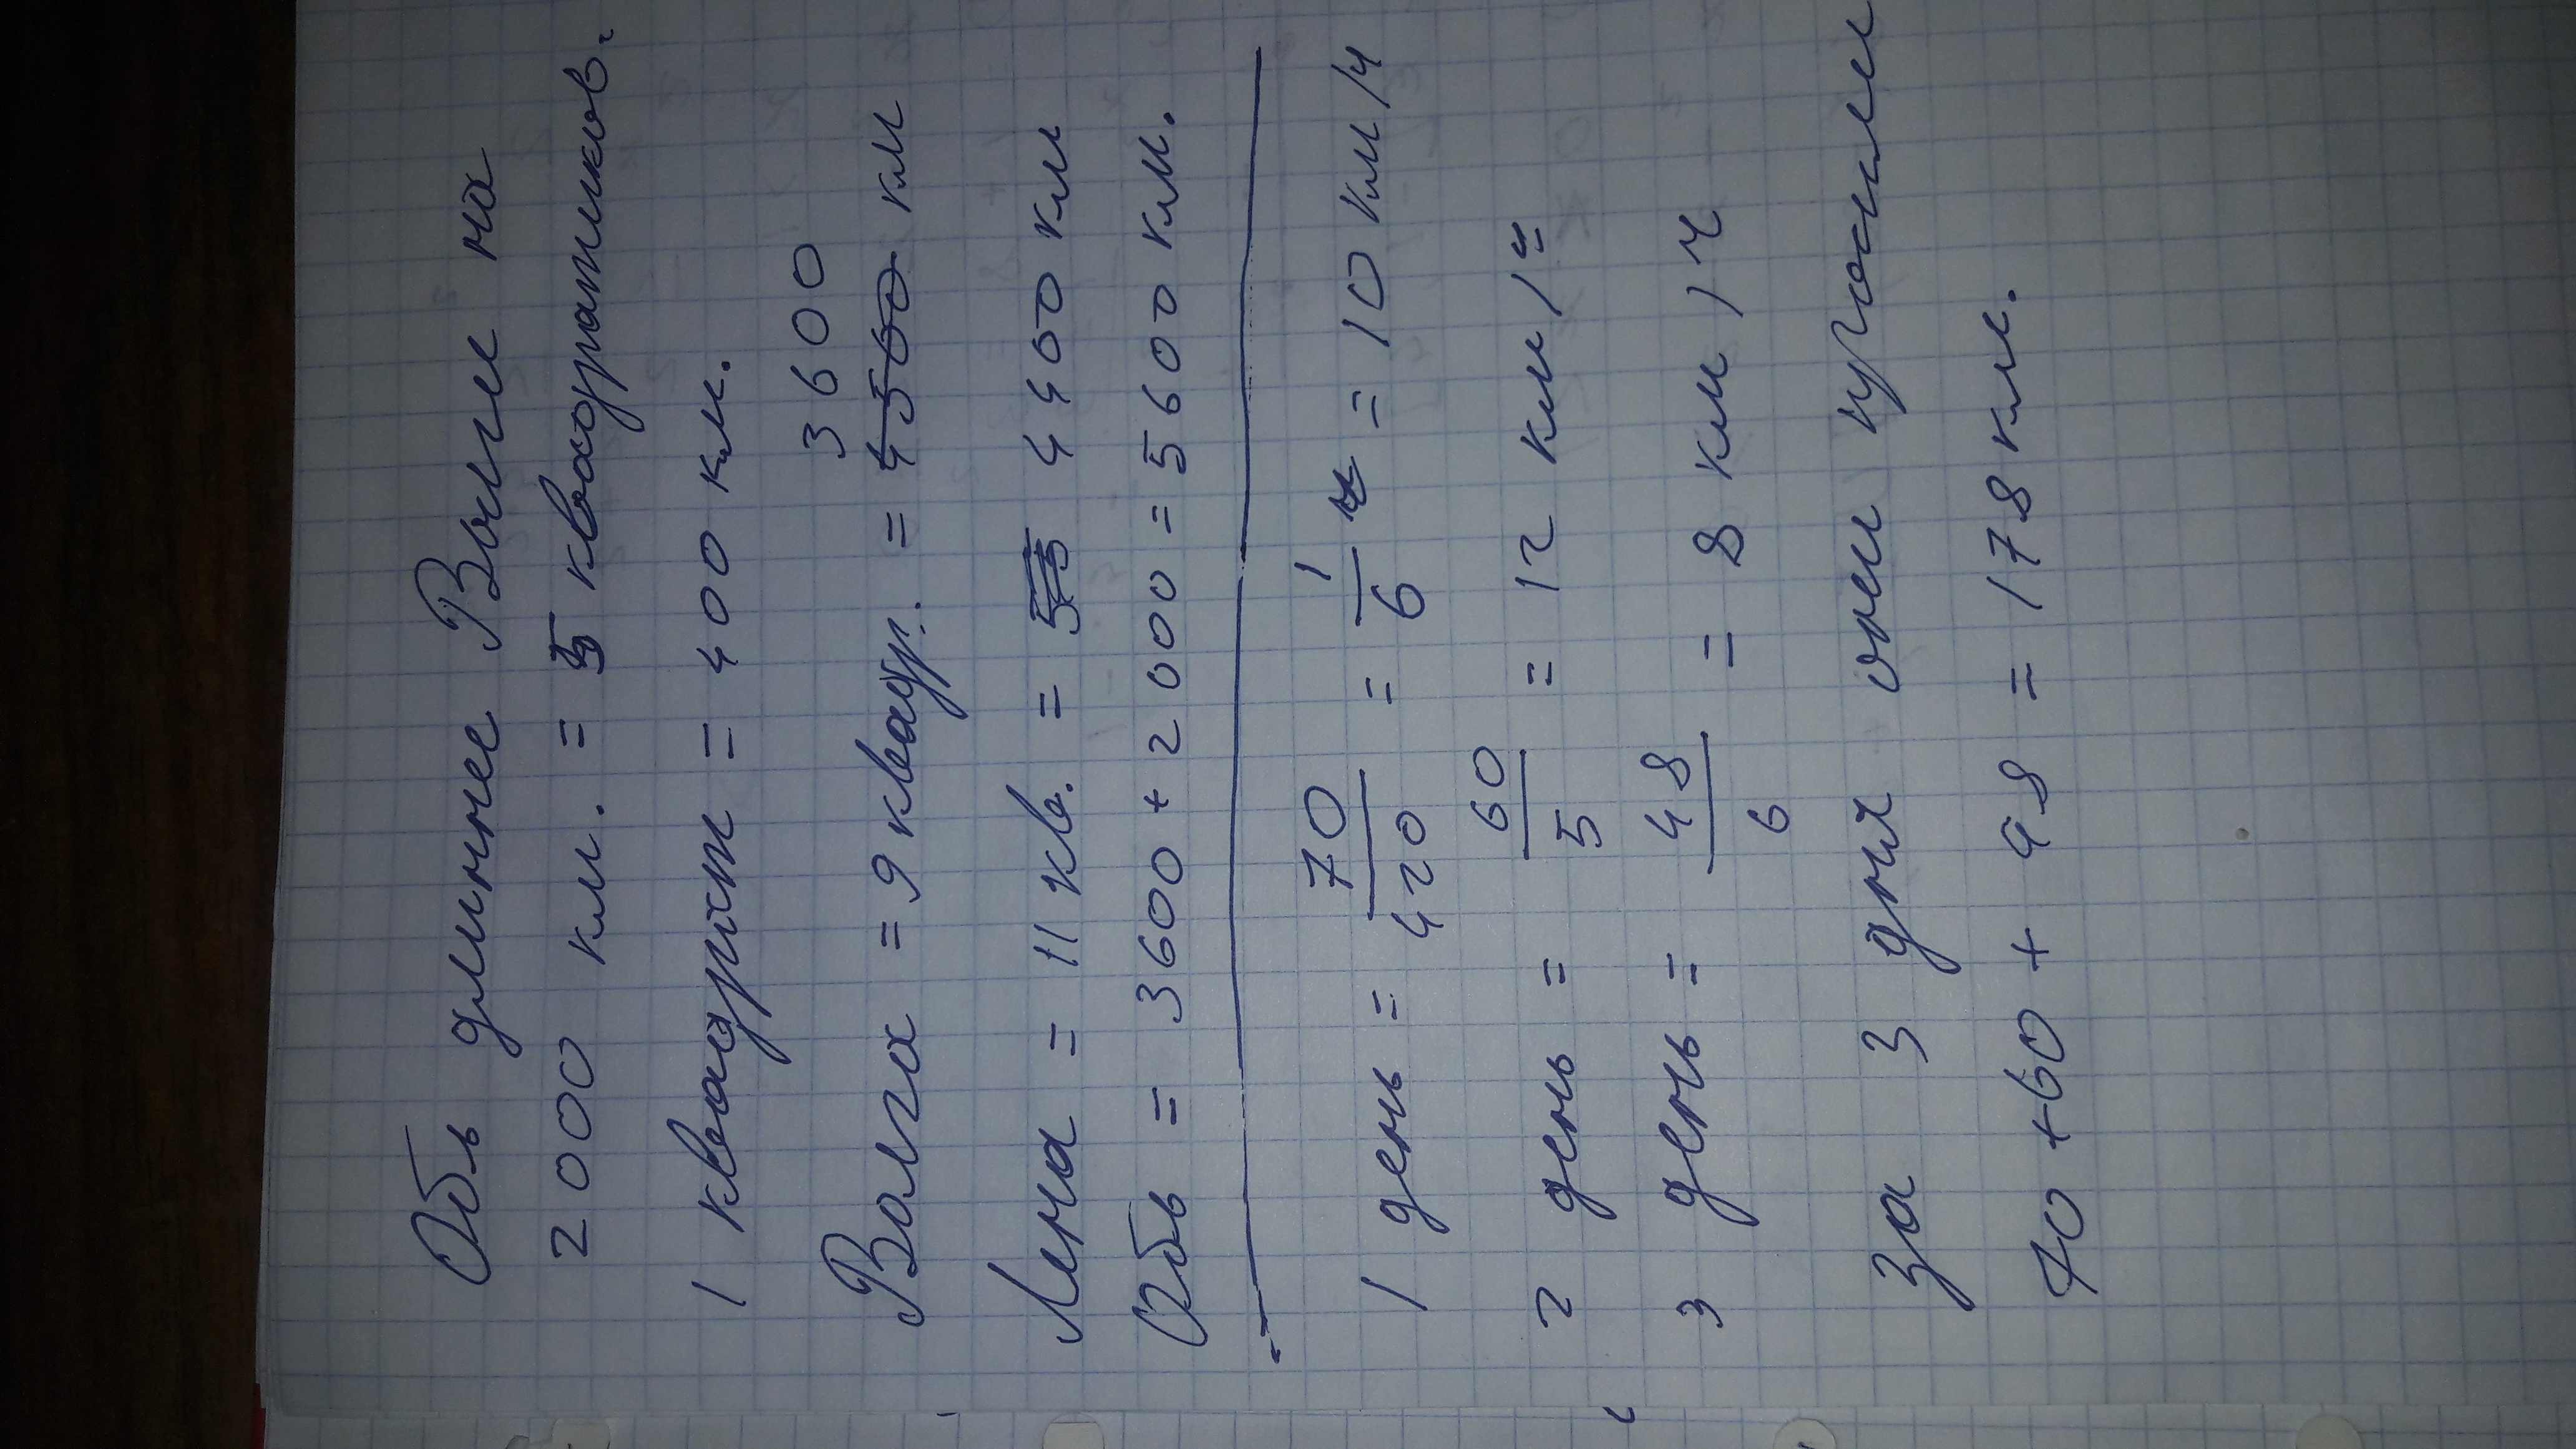 Обь длиннее Волги на
2000 км. = 5 квадратиков.
1 квадрат = 400 км.
3600
Волга = 9 квадр. = 4500 км
Лена = 11 кв. = 55 4400 км
Обь = 3600 + 2000 = 5600 км.
1 день = 70/420 = 1/6 ч = 10 км/ч
2 день = 60/5 = 12 км/ч
3 день = 48/6 = 8 км/ч
За 3 дня они прошли
70 + 60 + 48 = 178 км.